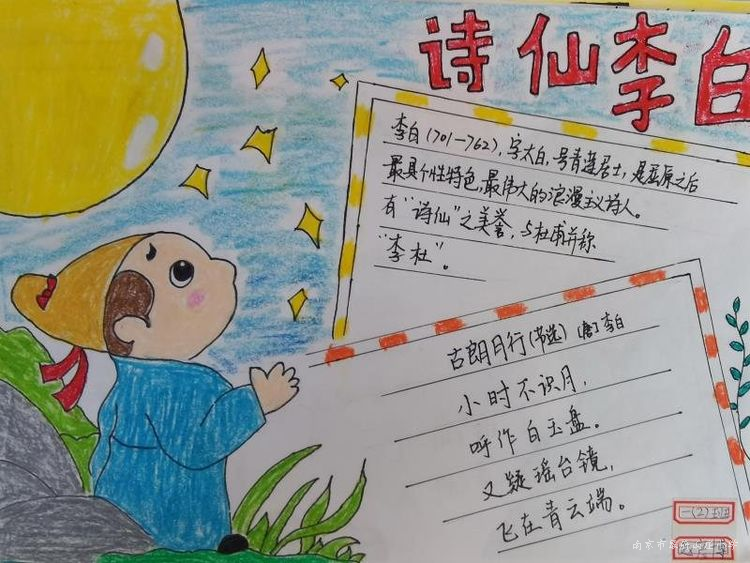 诗仙李白
李白(701-762),字太白,号青莲居士,是屈原之后
最具个性特色,最伟大的浪漫主义诗人。
有“诗仙”之美誉,与杜甫并称
“李杜”。
古朗月行(节选) [唐] 李白
小时不识月,
呼作白玉盘。
又疑瑶台镜,
飞在青云端。
一(2)班